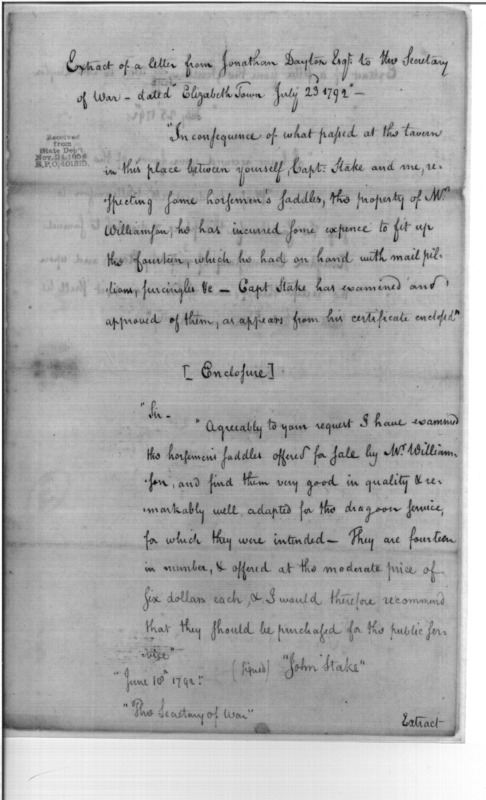 Extract of a letter from Jonathan Dayton Esqr. to the Secretary
of War – dated "Elizabeth Town July 23d 1792" –
Received
from
State Dep't
"In consequence of what passed at the tavern
in this place between yourself, Capt. Stake and me, re-
specting some horsemen's saddles, the property of Mr.
Williamson, he has incurred some expence to fit up
the fourteen, which he had on hand with mail pil-
lions, surcingles &c – Capt Stake has examined and
approved of them, as appears from his certificate enclosed"
[Enclosure]
"Sir –
"Agreeably to your request I have examined
the horsemens saddles offered for sale by Mr. William-
son, and find them very good in quality & re-
markably well adapted for the dragoon service,
for which they were intended – They are fourteen
in number, & offered at the moderate price of
six dollars each, & I would therefore recommend
that they should be purchased for the public ser-
vice"
(signed) "John Stake"
"June 1792."
"The Secretary of War"
Extract